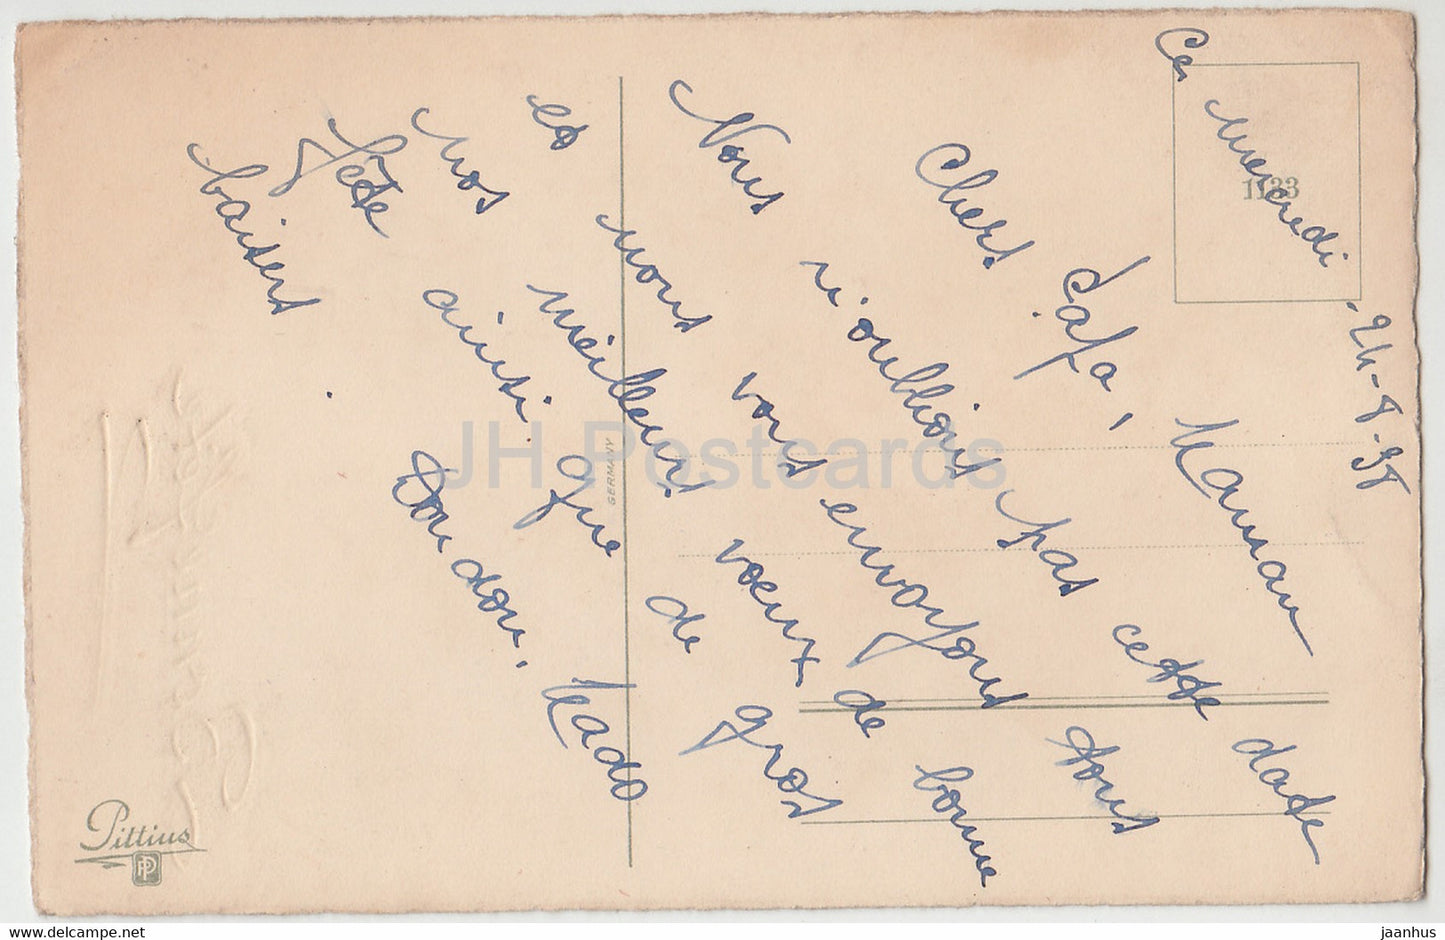 Ce mercredi 24-8-38
Chers Papa, Maman
Nous n'oublions pas cette date
et nous vous envoyons tous
nos meilleurs voeux de bonne
fête ainsi que de gros
baisers.
Doudou, Mado
1133
GERMANY
Pittius
PP
JH Postcards
jaanhus | delcampe.net